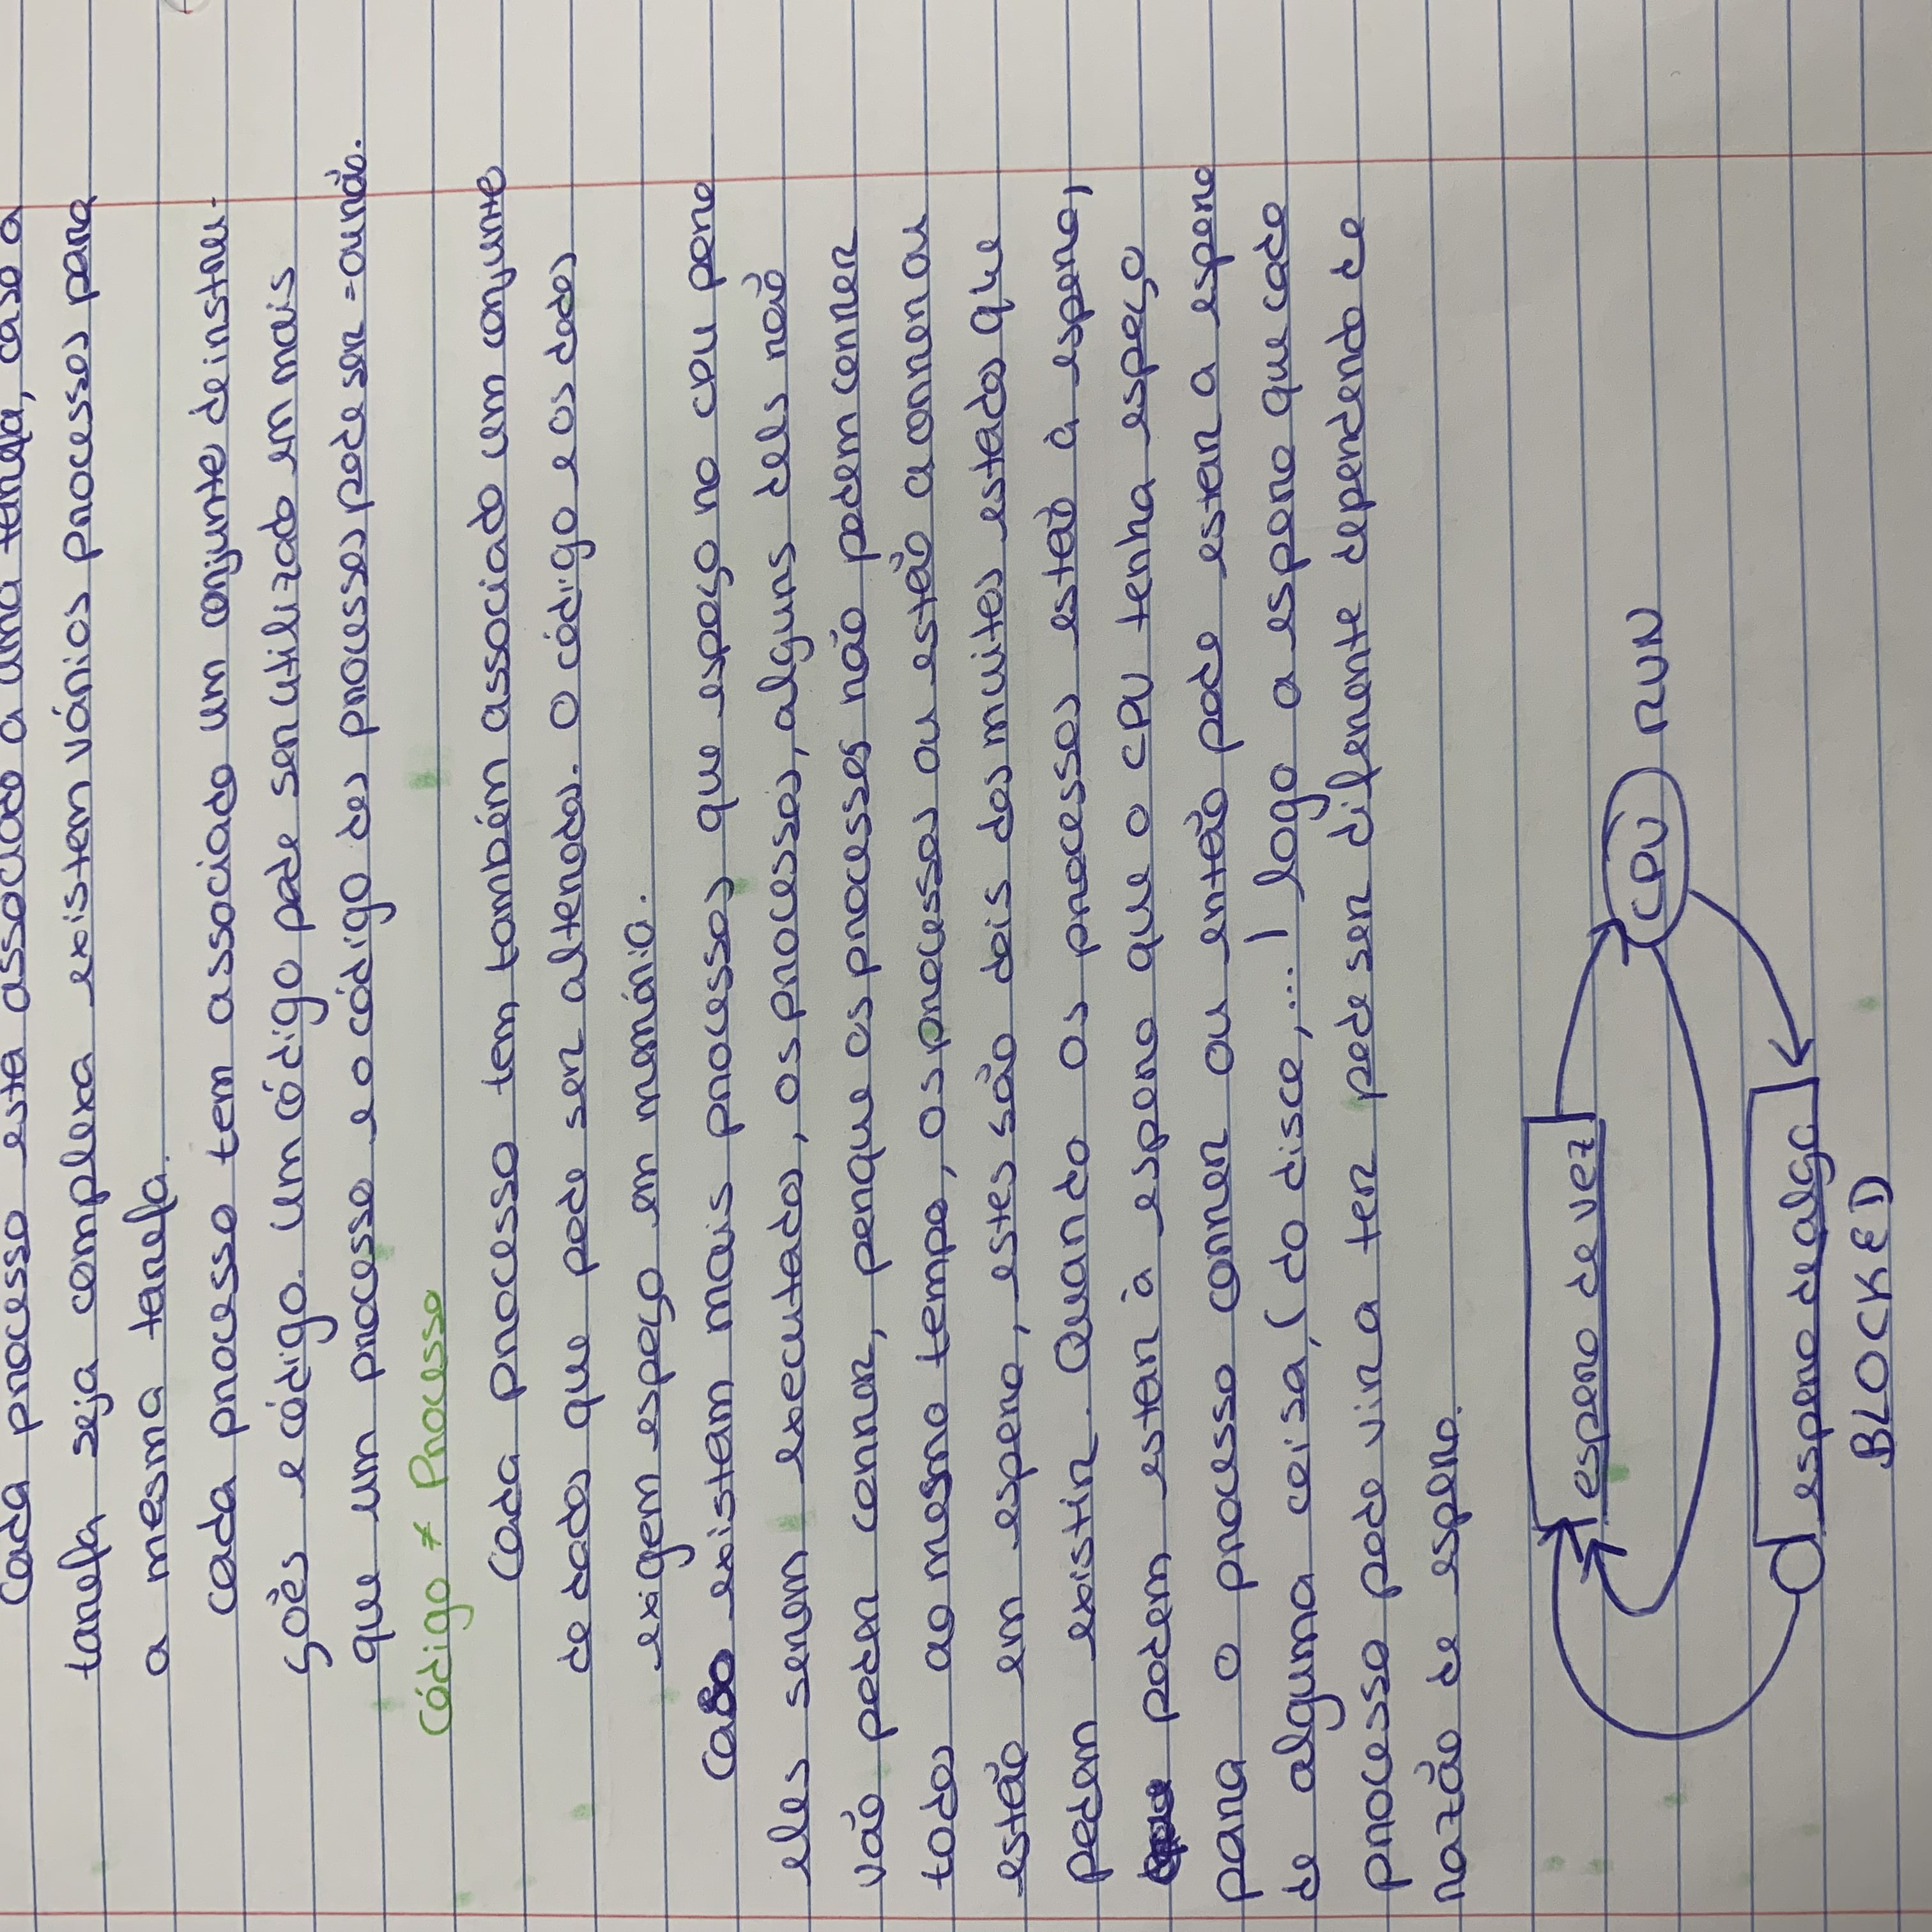 Cada processo está associado a uma tarefa, caso a
tarefa seja complexa existem vários processos para
a mesma tarefa.
Cada processo tem associado um conjunto de instru-
ções e código. Um código pode ser utilizado em mais
que um processo e o código dos processos pode ser = ou não.
Código ≠ Processo
Cada processo tem também associado um conjunto
de dados que pode ser alterados. O código e os dados
exigem espaço em memória.
Caso existam mais processos que espaço no CPU para
eles serem executados, os processos, alguns dels não
vão poder correr, porque os processos não podem correr
todos ao mesmo tempo, os processos ou estão a correr ou
estão em espera, estes são dois dos muitos estados que
podem existir. Quando os processos estão à espera,
podem estar à espera que o CPU tenha espaço
para o processo correr ou então pode estar a espera
de alguma coisa, (do disco, ...) logo a espera que cada
processo pode vir a ter pode ser diferente dependendo da
razão de espera.
espera de vez
CPU RUN
espera de algo
BLOCKED